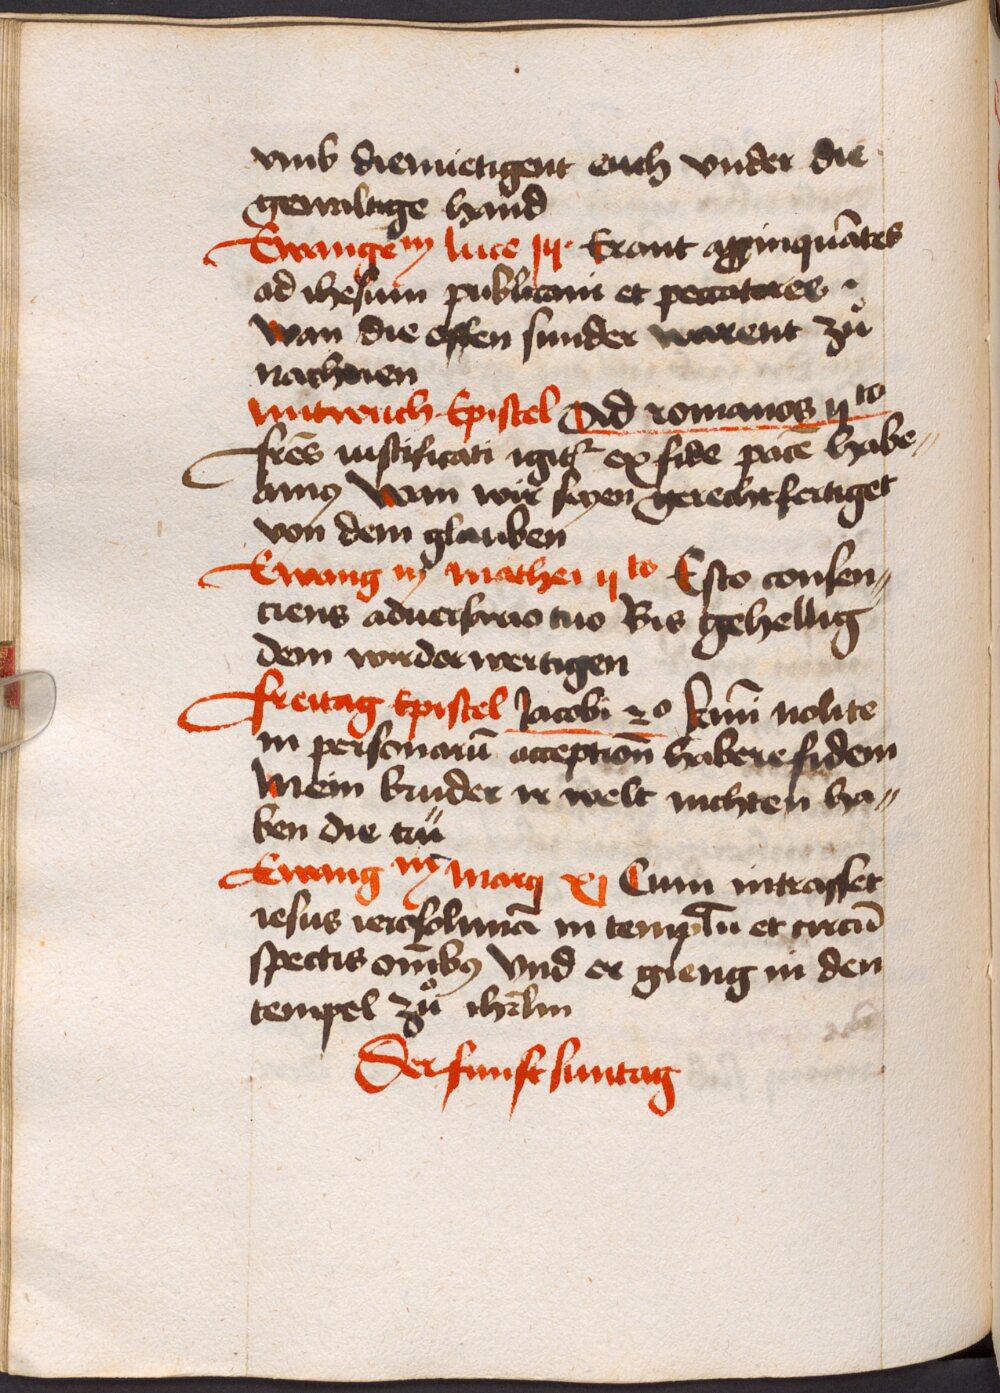 vmb diemietigent euch vnder die
gewaltige hand
Ewange^m luce Erant appinquātes
ad ihesum publicani et peccatores
Wan die offen sunder warent zuͦ
nachenen
mitwuch Epistel Ad romanos v^to
frēs iustificati igit^r ex fide pacē habe〃
amꝰ Wan wir syen gerechtfertiget
von dem glauben
Ewang^m mathei v^to Esto consen〃
ciens aduersario tuo Bis gehellig
dem widerwertigen
freitag Epistel Jacobi 2º nolite
in personarū acceptioñ habere fidem
Mein bruder ir welt nichten ha〃
ben die trü
Ewang^m Marci xj Cum intrasset
iesus ierosolimā in templū et circū
spectis om̄ibꝰ Vnd er gieng in den
tempel zuͦ ihrl̄m
Der funft suntag